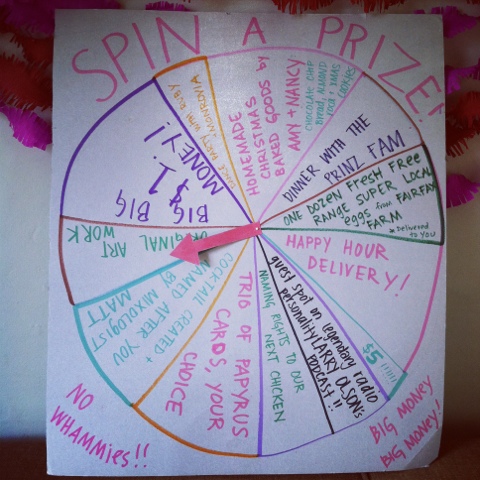 SPIN A PRIZE!
HOMEMADE
CHRISTMAS
BAKED GOODS by
AMY + NANCY
CHOCOLATE CHIP
Bread, ALMOND
ROCA + XMAS
COOKIES
DINNER WITH THE
PRINZ FAM
ONE DOZEN FRESH FREE
RANGE SUPER LOCAL
eggs from FAIRFAX
FARM
* Delivered
to you
HAPPY HOUR
DELIVERY!
$5
guest spot on legendary radio
personality LARRY OLSON's
PODCAST!!
NAMING RIGHTS TO OUR
NEXT CHICKEN
TRIO OF PAPYRUS
CARDS, YOUR
CHOICE
COCKTAIL CREATED +
NAMED AFTER YOU
BY MIXOLOGIST
MATT
ORIGINAL
ART
WORK
BIG BIG
$1
MONEY!
DANCE PARTY WITH RUBY
+ MONROVIA
NO
WHAMMIES!!
BIG MONEY
BIG MONEY!